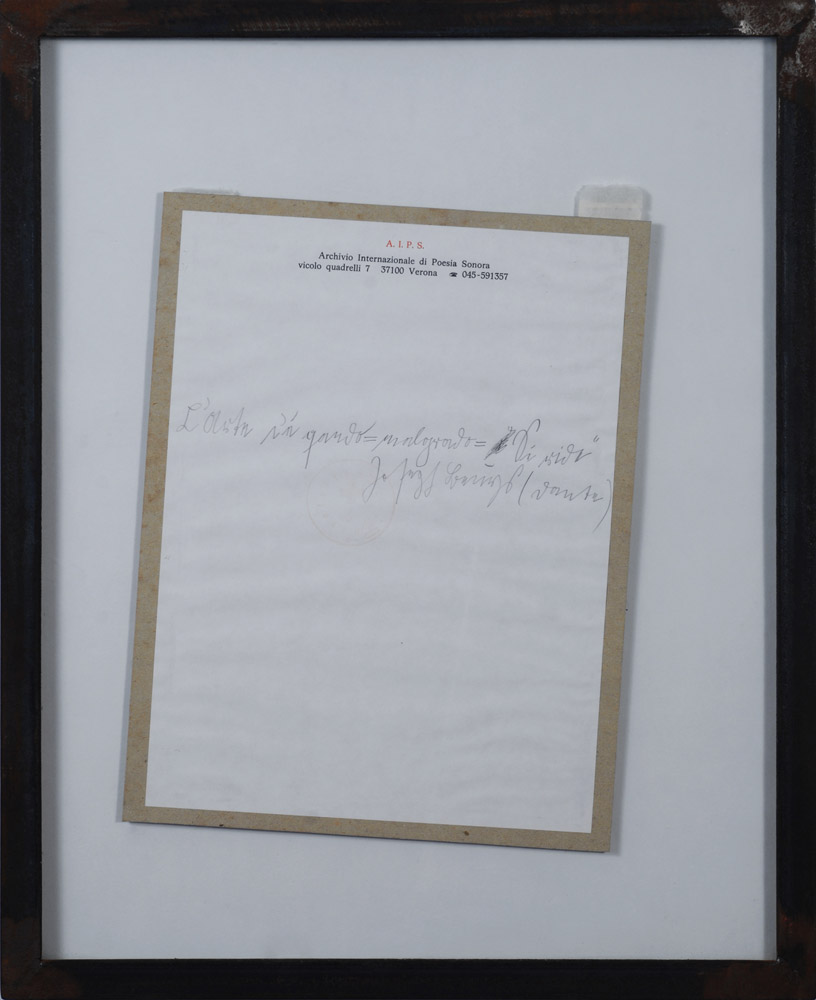 A. I. P. S.
Archivio Internazionale di Poesia Sonora
vicolo quadrelli 7 37100 Verona ☎ 045-591357
L'Arte è quando= malgrado= "Si ridt"
Joseph Beuys (Dante)